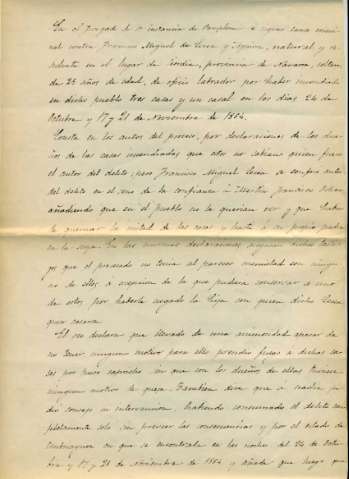 En el Juzgado de 1ª instancia de Pamplona se siguió causa crimi-
nal contra Francisco Miguel de Luisa y Aguirre, natural y re-
sidente en el lugar de Ciordia, provincia de Navarra, soltero,
de 25 años de edad, de oficio labrador por haber incendiado
en dicho pueblo tres casas y un casal en los dias 24 de
Octubre y 17 y 21 de Noviembre de 1884.
Consta en los autos del proceso, por declaraciones de los due-
ños de las casas incendiadas que estos no sabian quien fuera
el autor del delito; pero Francisco Miguel se confesó autor
del delito en el seno de la confianza á Martin
añadiendo que en el pueblo no le querian ver y que habia
de quemar la mitad de las casas y hasta á su propia madre
en la suya. En las mismas declaraciones dichos testi-
gos que el procesado no tenia al parecer enemistad con ningu-
no de ellos á escepcion de la que pudiera conservar á uno
de estos por haberle negado la hija con quien dicho
queria casarse.
El reo declara que llevado de una animosidad apesar de
no tener ninguno motivo para ello prendió fuego á dichas ca-
sas por puro capricho sin que con los dueños de ellas tuviese
ninguno motivo de queja. Tambien dice que á nadie pi-
dió consejo ni intervencion, habiendo consumado el delito com-
pletamente solo sin preveer las consecuencias y por el estado de
embriaguez en que se encontraba en las noches del 24 de Octu-
bre y 17 y 21 de Noviembre de 1884 y añade que luego que